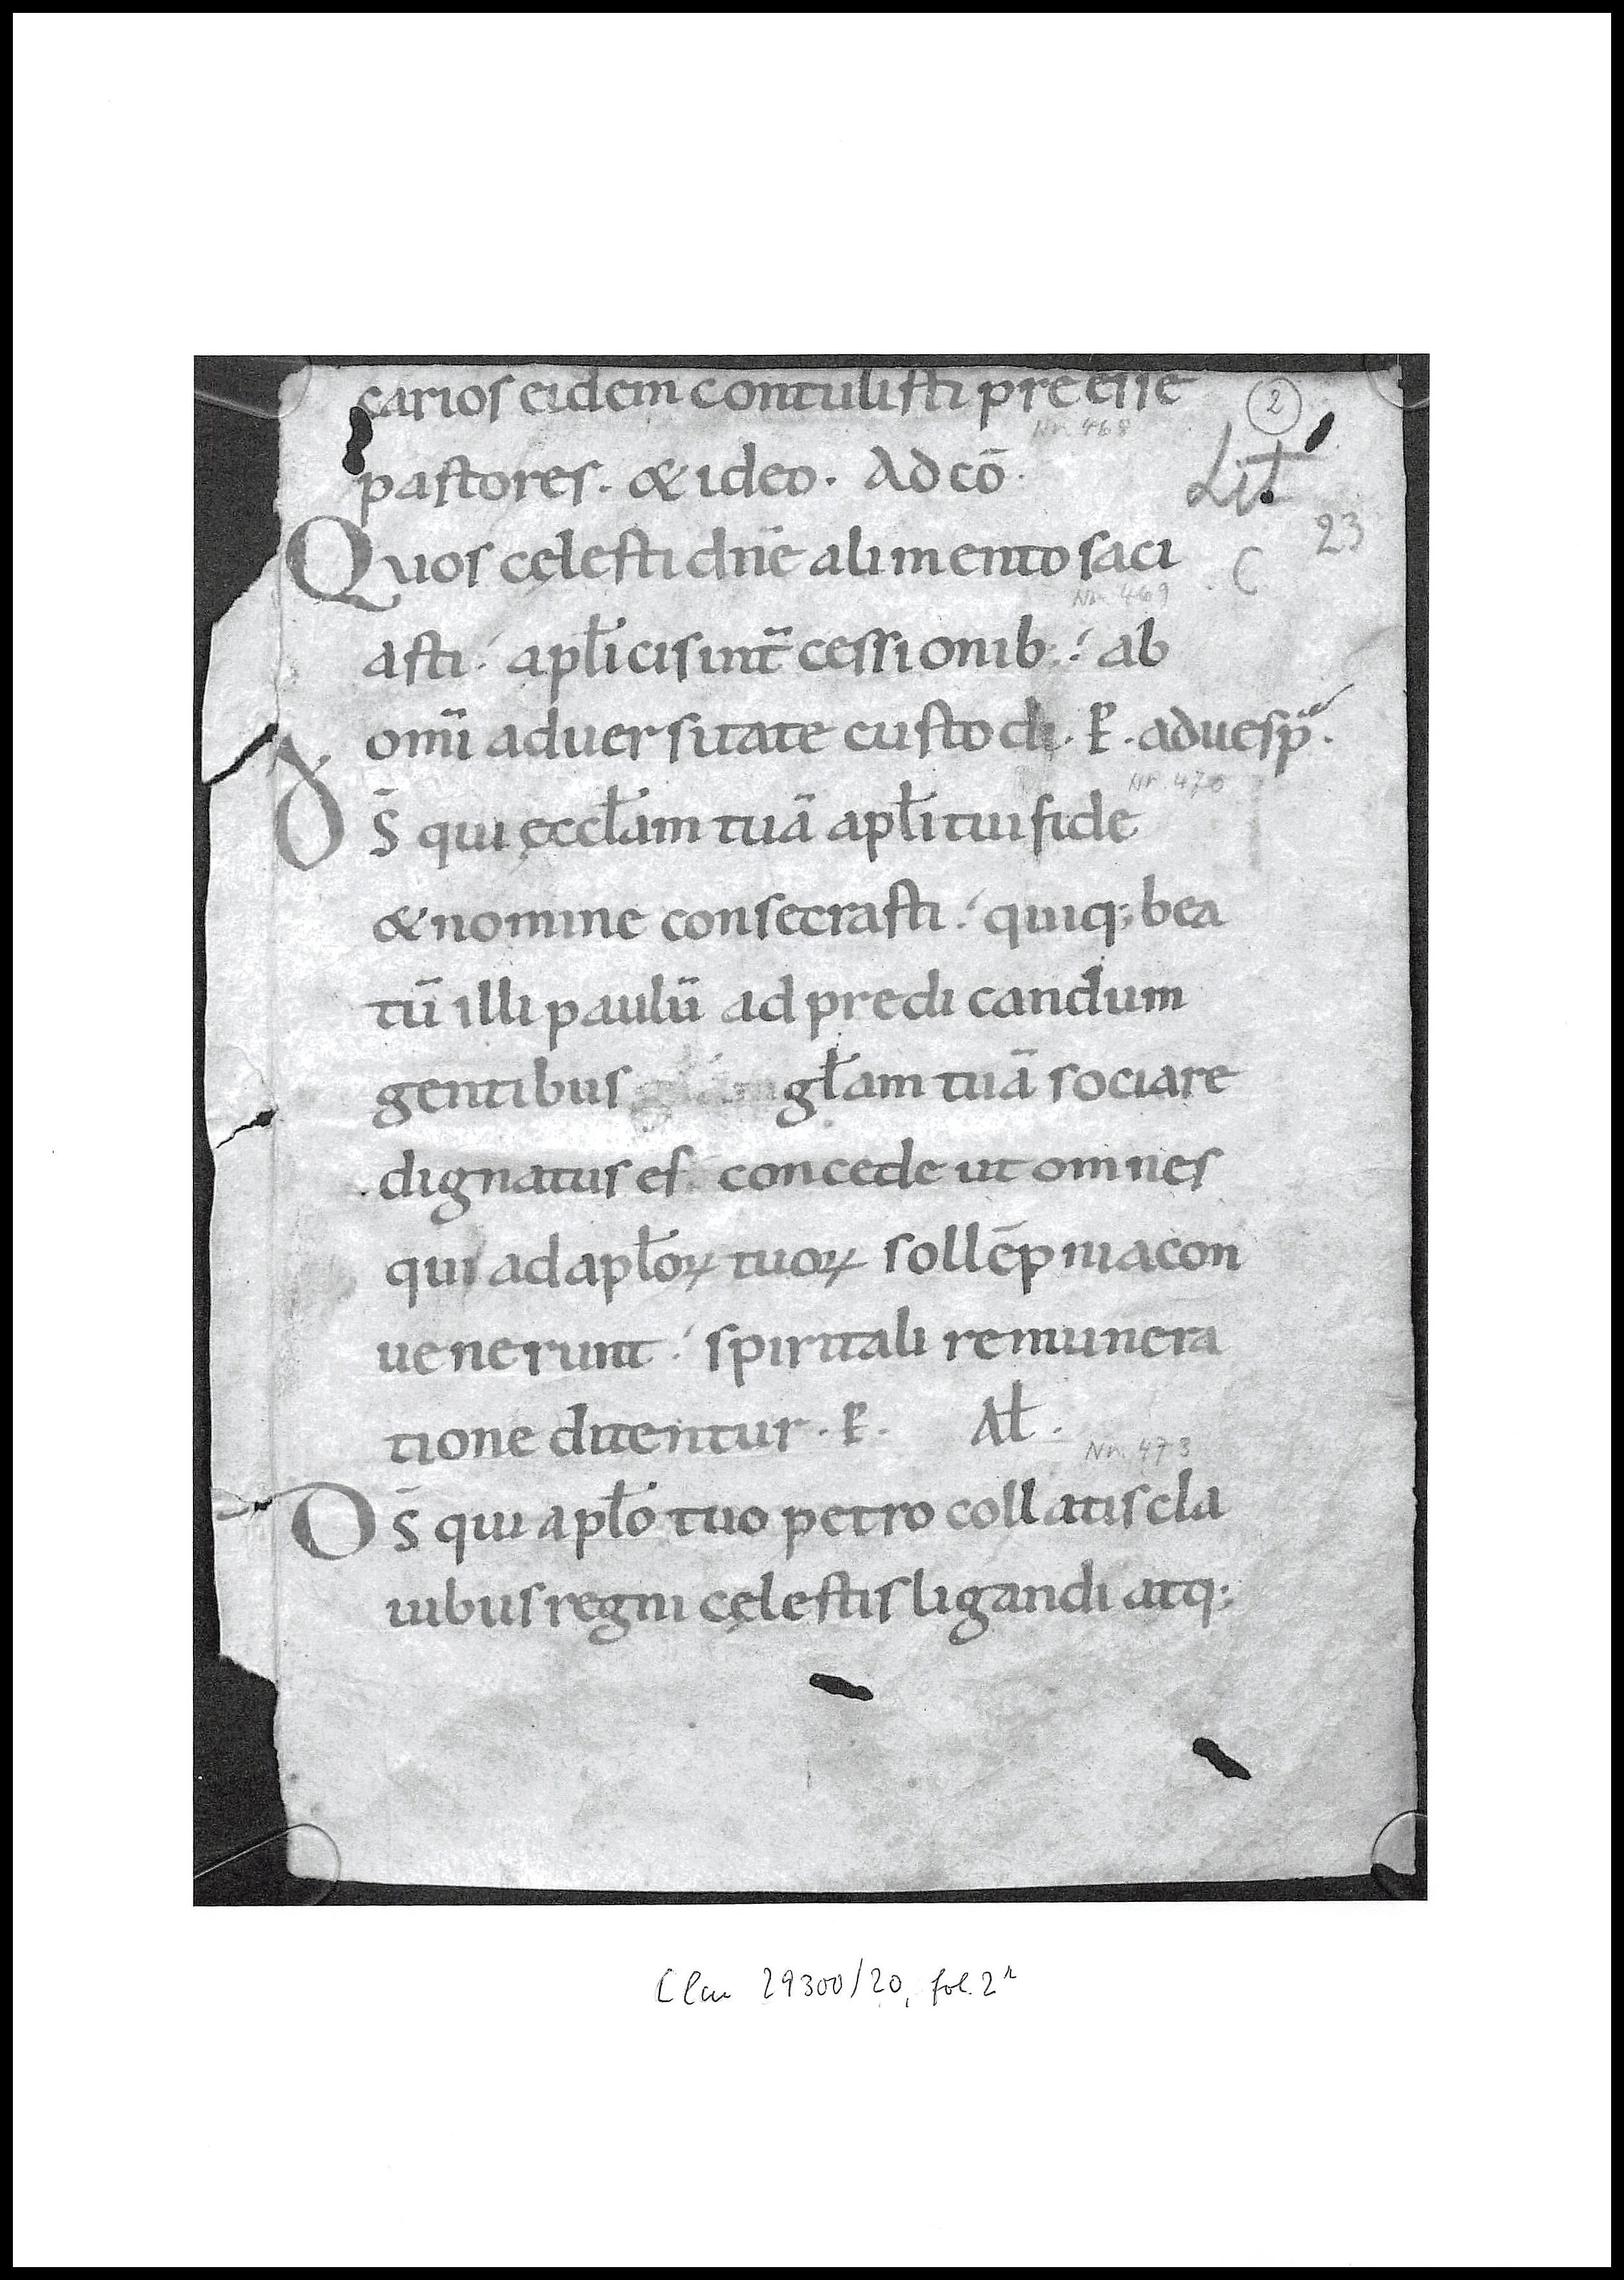 carios eidem contulisti preesse
2
Nr. 468
pastores. & ideo. Ad cō.
Lit
23
Quos cęlesti dn̄e alimento saci
C
Nr. 469
asti. apłicis int̄cessionib; ab
om̄i aduersitate custodi. P. ad uesp̄.
Nr. 470
D̄S qui ęccłam tuā apłi tui fide
& nomine consecrasti. quiq; bea
tū illi paulū ad predicandum
gentibus głam tuā sociare
dignatus es. concede ut omnes
qui ad apłoꝝ tuoꝝ sollēpnia con
uenerunt. spiritali remunera
tione ditentur. P. Ał.
Nr. 473
D̄S qui apło tuo petro collatis cla
uibus regni cęlestis ligandi atq;
Clm 29300/20, fol. 2r